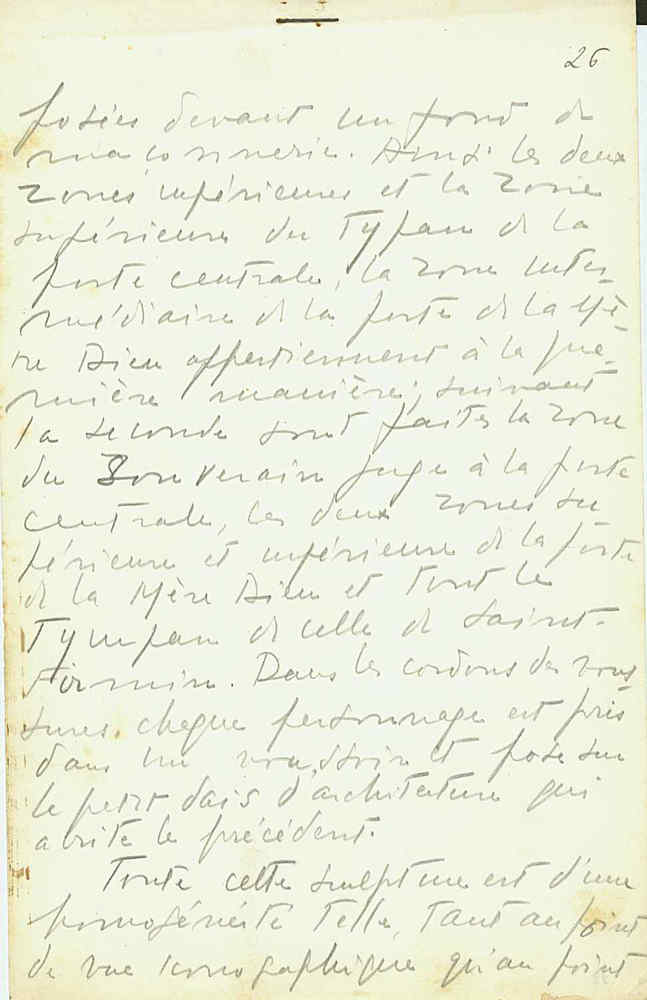 26
posées devant un fond de
maçonnerie. Ainsi les deux
zones inférieures et la zone
supérieure du Tympan de la
porte centrale, la zone inter-
médiaire de la porte de la Mè-
re Dieu appartiennent à la pre-
mière manière; suivant
la seconde sont faites la zone
du Souverain Juge à la porte
centrale, les deux zones su
périeure et inférieure de la porte
de la Mère Dieu et tout le
Tympan de celle de Saint-
Firmin. Dans les cordons des vous
sures, chaque personnage est pris
dans un voussoir et posé sur
le petit dais d'architecture qui
abrite le précédent.
Toute cette sculpture est d'une
homogénéité telle, tant au point
de vue iconographique qu'au point